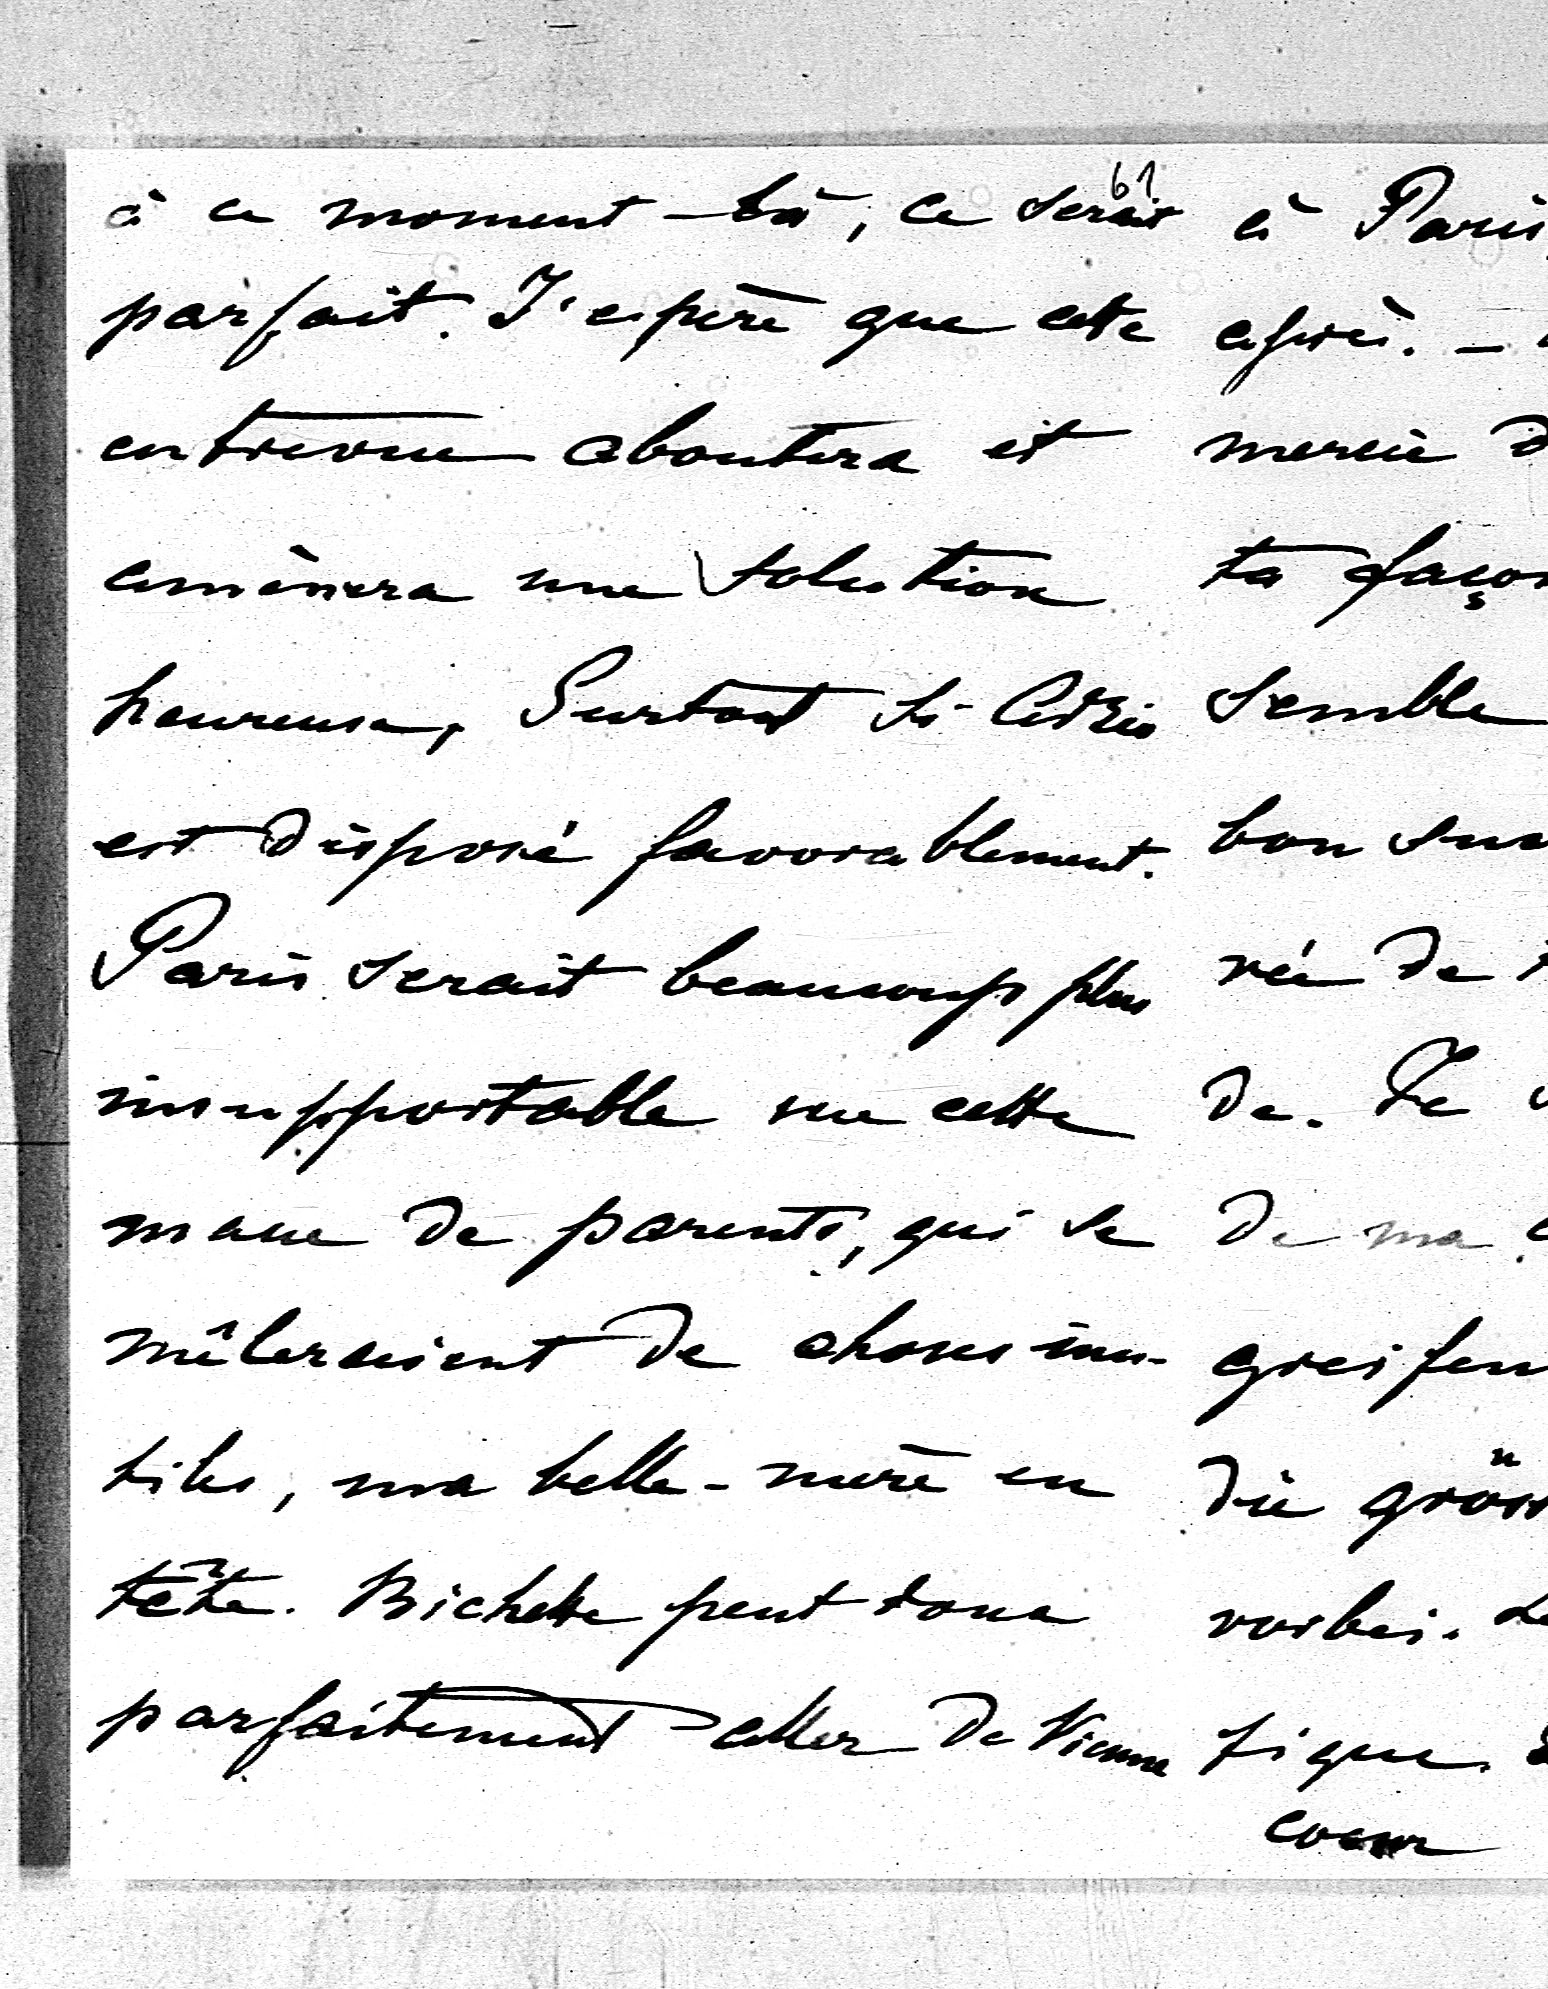 61
à ce moment-là, ce serait
parfait. J'espère que cette
entrevue aboutira et
amènera une solution
heureuse, Surtout si
est disposé favorablement.
Paris serait beaucoup plus
insupportable vu cette
masse de parents, qui se
mêleraient de choses inu-
tiles, ma belle-mère en
tête. Bichette peut donc
parfaitement aller de Vienne
à Paris,
après. -
mercie d
ta façon
semble
bon sur
rée de
de. Je
de ma
greifen
die gröss
vorbei.
figue.
coeur